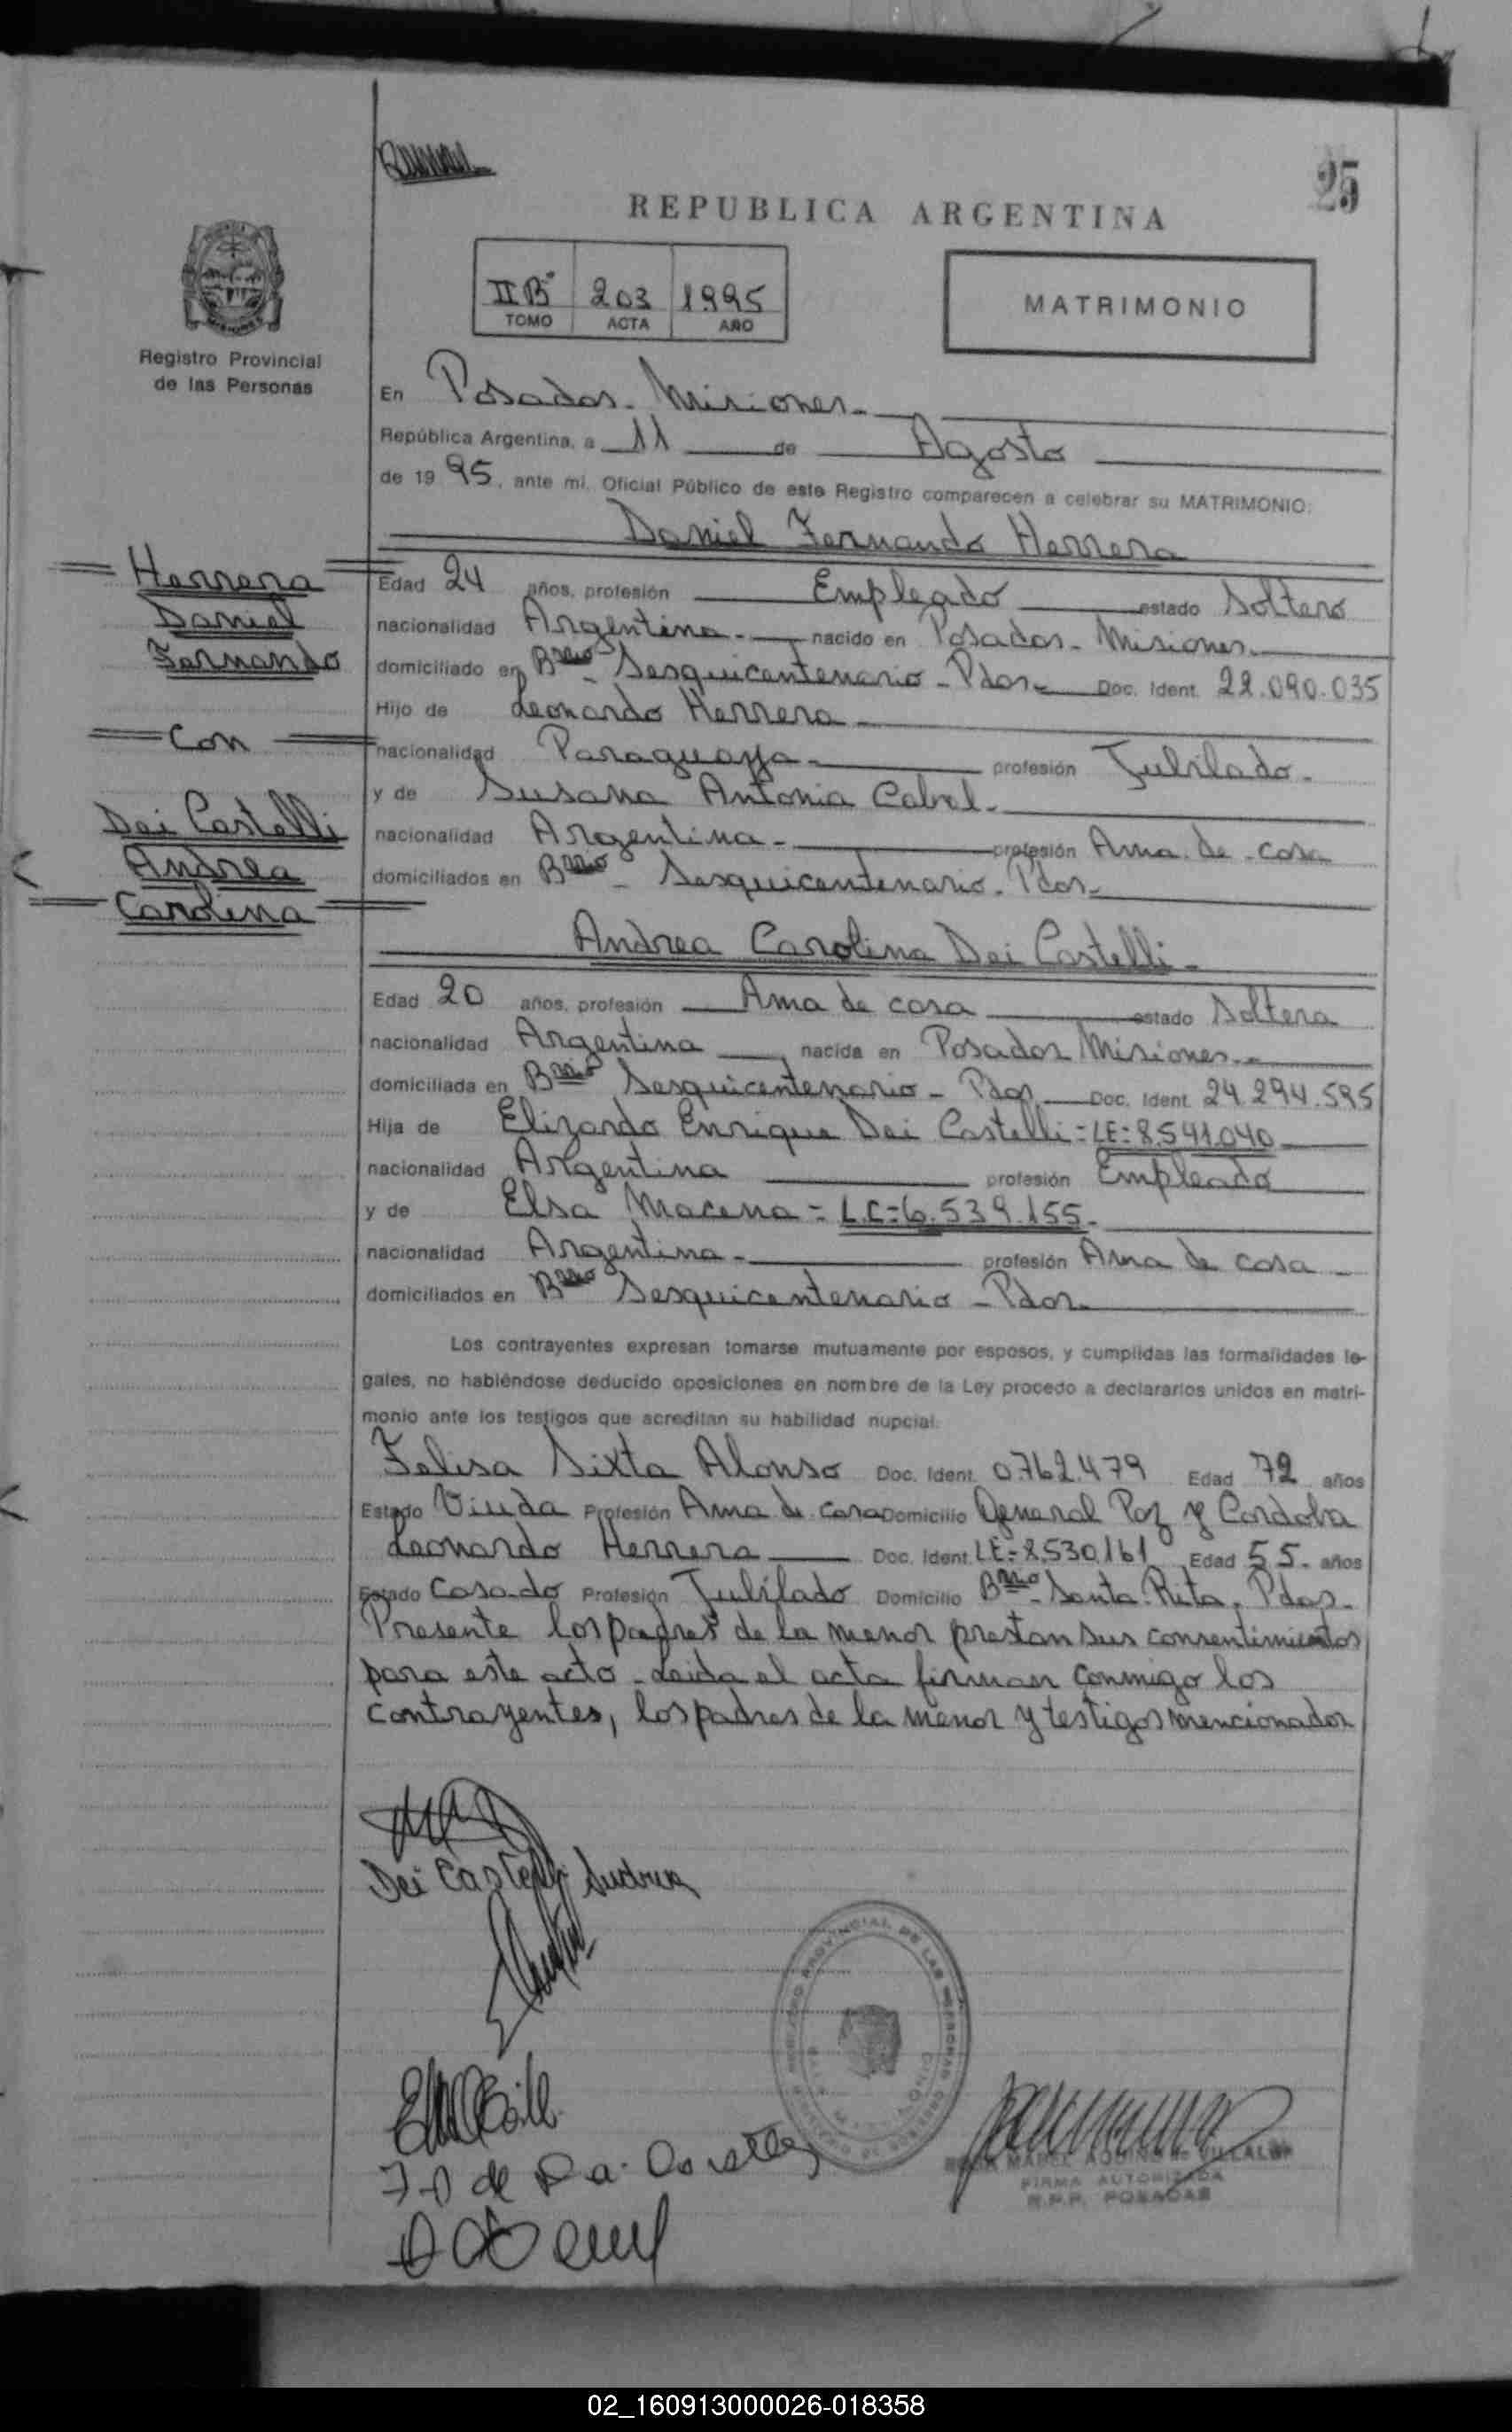 25
REPUBLICA ARGENTINA
IIB" 203 1995
TOMO ACTA AÑO
MATRIMONIO
Registro Provincial
de las Personas
En Posadas - Misiones -
República Argentina, a 11 de Agosto
de 1995, ante mí, Oficial Público de este Registro comparecen a celebrar su MATRIMONIO:
Daniel Fernando Herrera
Herrera
Daniel
Fernando
Con
Dei Castelli
Andrea
Carolina
Edad 24 años, profesión Empleado estado Soltero
nacionalidad Argentina - nacido en Posadas - Misiones -
domiciliado en Brrio - Sesquicentenario - Pdas - Doc. Ident. 22.090.035
Hijo de Leonardo Herrera -
nacionalidad Paraguaya - profesión Jubilado -
y de Susana Antonia Cabral -
nacionalidad Argentina - profesión Ama de casa
domiciliados en Brrio - Sesquicentenario - Pdas -
Andrea Carolina Dei Castelli -
Edad 20 años, profesión Ama de casa estado Soltera
nacionalidad Argentina nacida en Posadas Misiones -
domiciliada en Brrio Sesquicentenario - Pdas Doc. Ident. 24.294.595
Hija de Elizardo Enrique Dei Castelli = LE = 8.541.040
nacionalidad Argentina profesión Empleado
y de Elsa Macena = L.C = 6.539.155 -
nacionalidad Argentina - profesión Ama de casa -
domiciliados en Brrio Sesquicentenario - Pdas -
Los contrayentes expresan tomarse mutuamente por esposos, y cumplidas las formalidades le-
gales, no habiéndose deducido oposiciones en nombre de la Ley procedo a declararlos unidos en matri-
monio ante los testigos que acreditan su habilidad nupcial.
Felisa Sixta Alonso Doc. Ident. 0.762.479 Edad 72 años
Estado Viuda Profesión Ama de casa Domicilio General Paz y Cordoba
Leonardo Herrera Doc. Ident. LE = 8.530.161 Edad 55 - años
Estado Casado Profesión Jubilado Domicilio Brrio - Santa Rita - Pdas -
Presente los padres de la menor prestan sus consentimientos
para este acto - Leida el acta firman conmigo los
contrayentes, los padres de la menor y testigos mencionados
Dei Castelli Andrea
REGISTRO PROVINCIAL DE LAS PERSONAS
MABEL AQUINO de VILLALBA
FIRMA AUTORIZADA
R.P.P. POSADAS
02_160913000026-018358